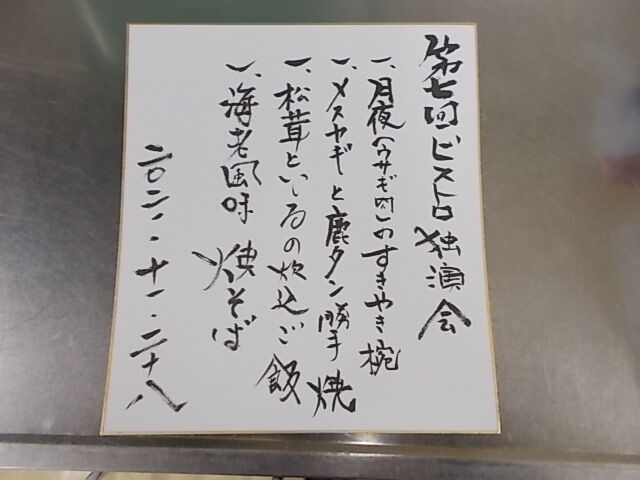 第七回ビストロ独演会
一、月夜(ウサギ肉)のすきやき椀
一、メスヤギと鹿タン勝手焼
一、松茸といるの炊込ご飯
一、海老風味焼そば
二〇二一・十一・二十八